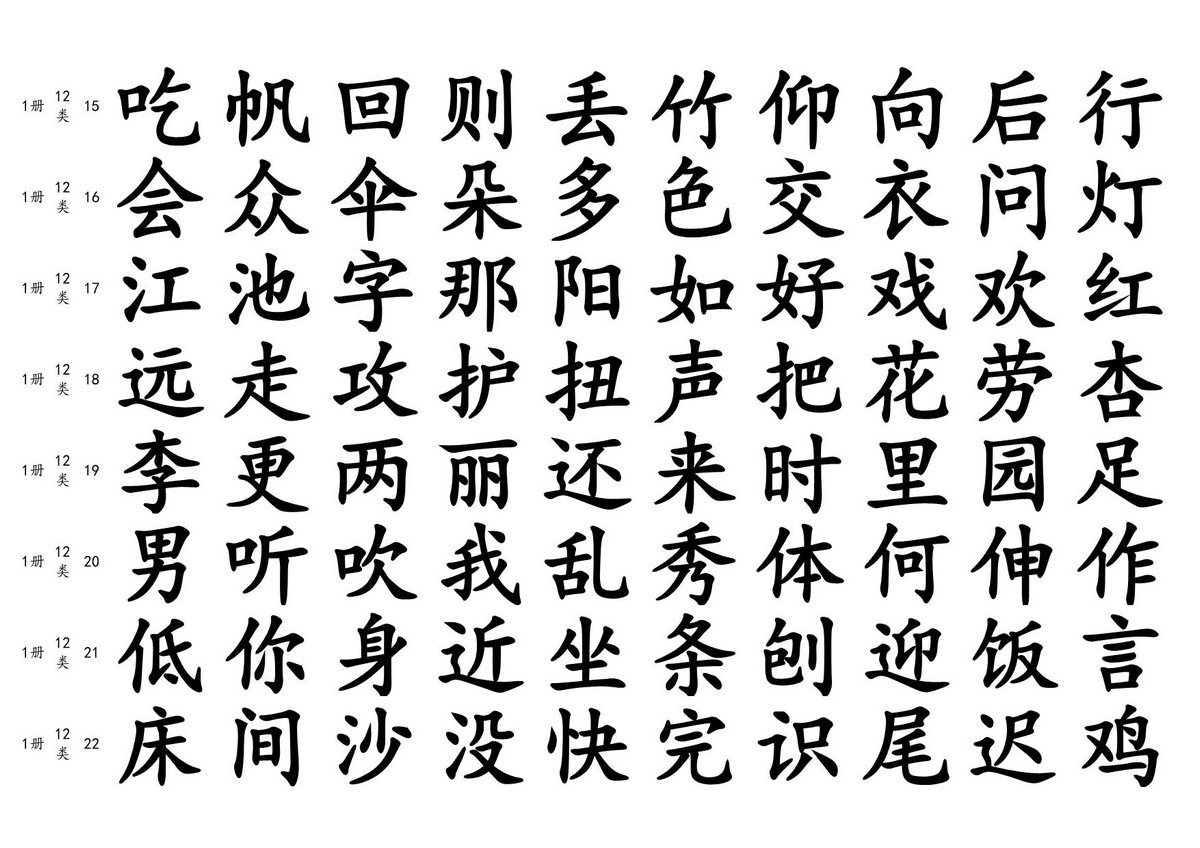 1册 12类 15 吃帆回则丢竹仰向后行
1册 12类 16 会众伞朵多色交衣问灯
1册 12类 17 江池字那阳如好戏欢红
1册 12类 18 远走攻护扭声把花劳杏
1册 12类 19 李更两丽还来时里园足
1册 12类 20 男听吹我乱秀体何伸作
1册 12类 21 低你身近坐条刨迎饭言
1册 12类 22 床间沙没快完识尾迟鸡